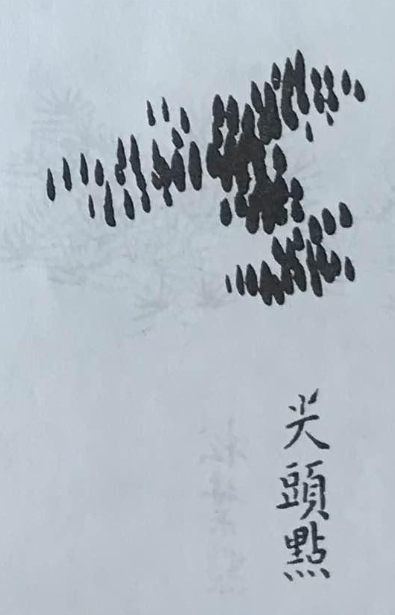 尖頭點